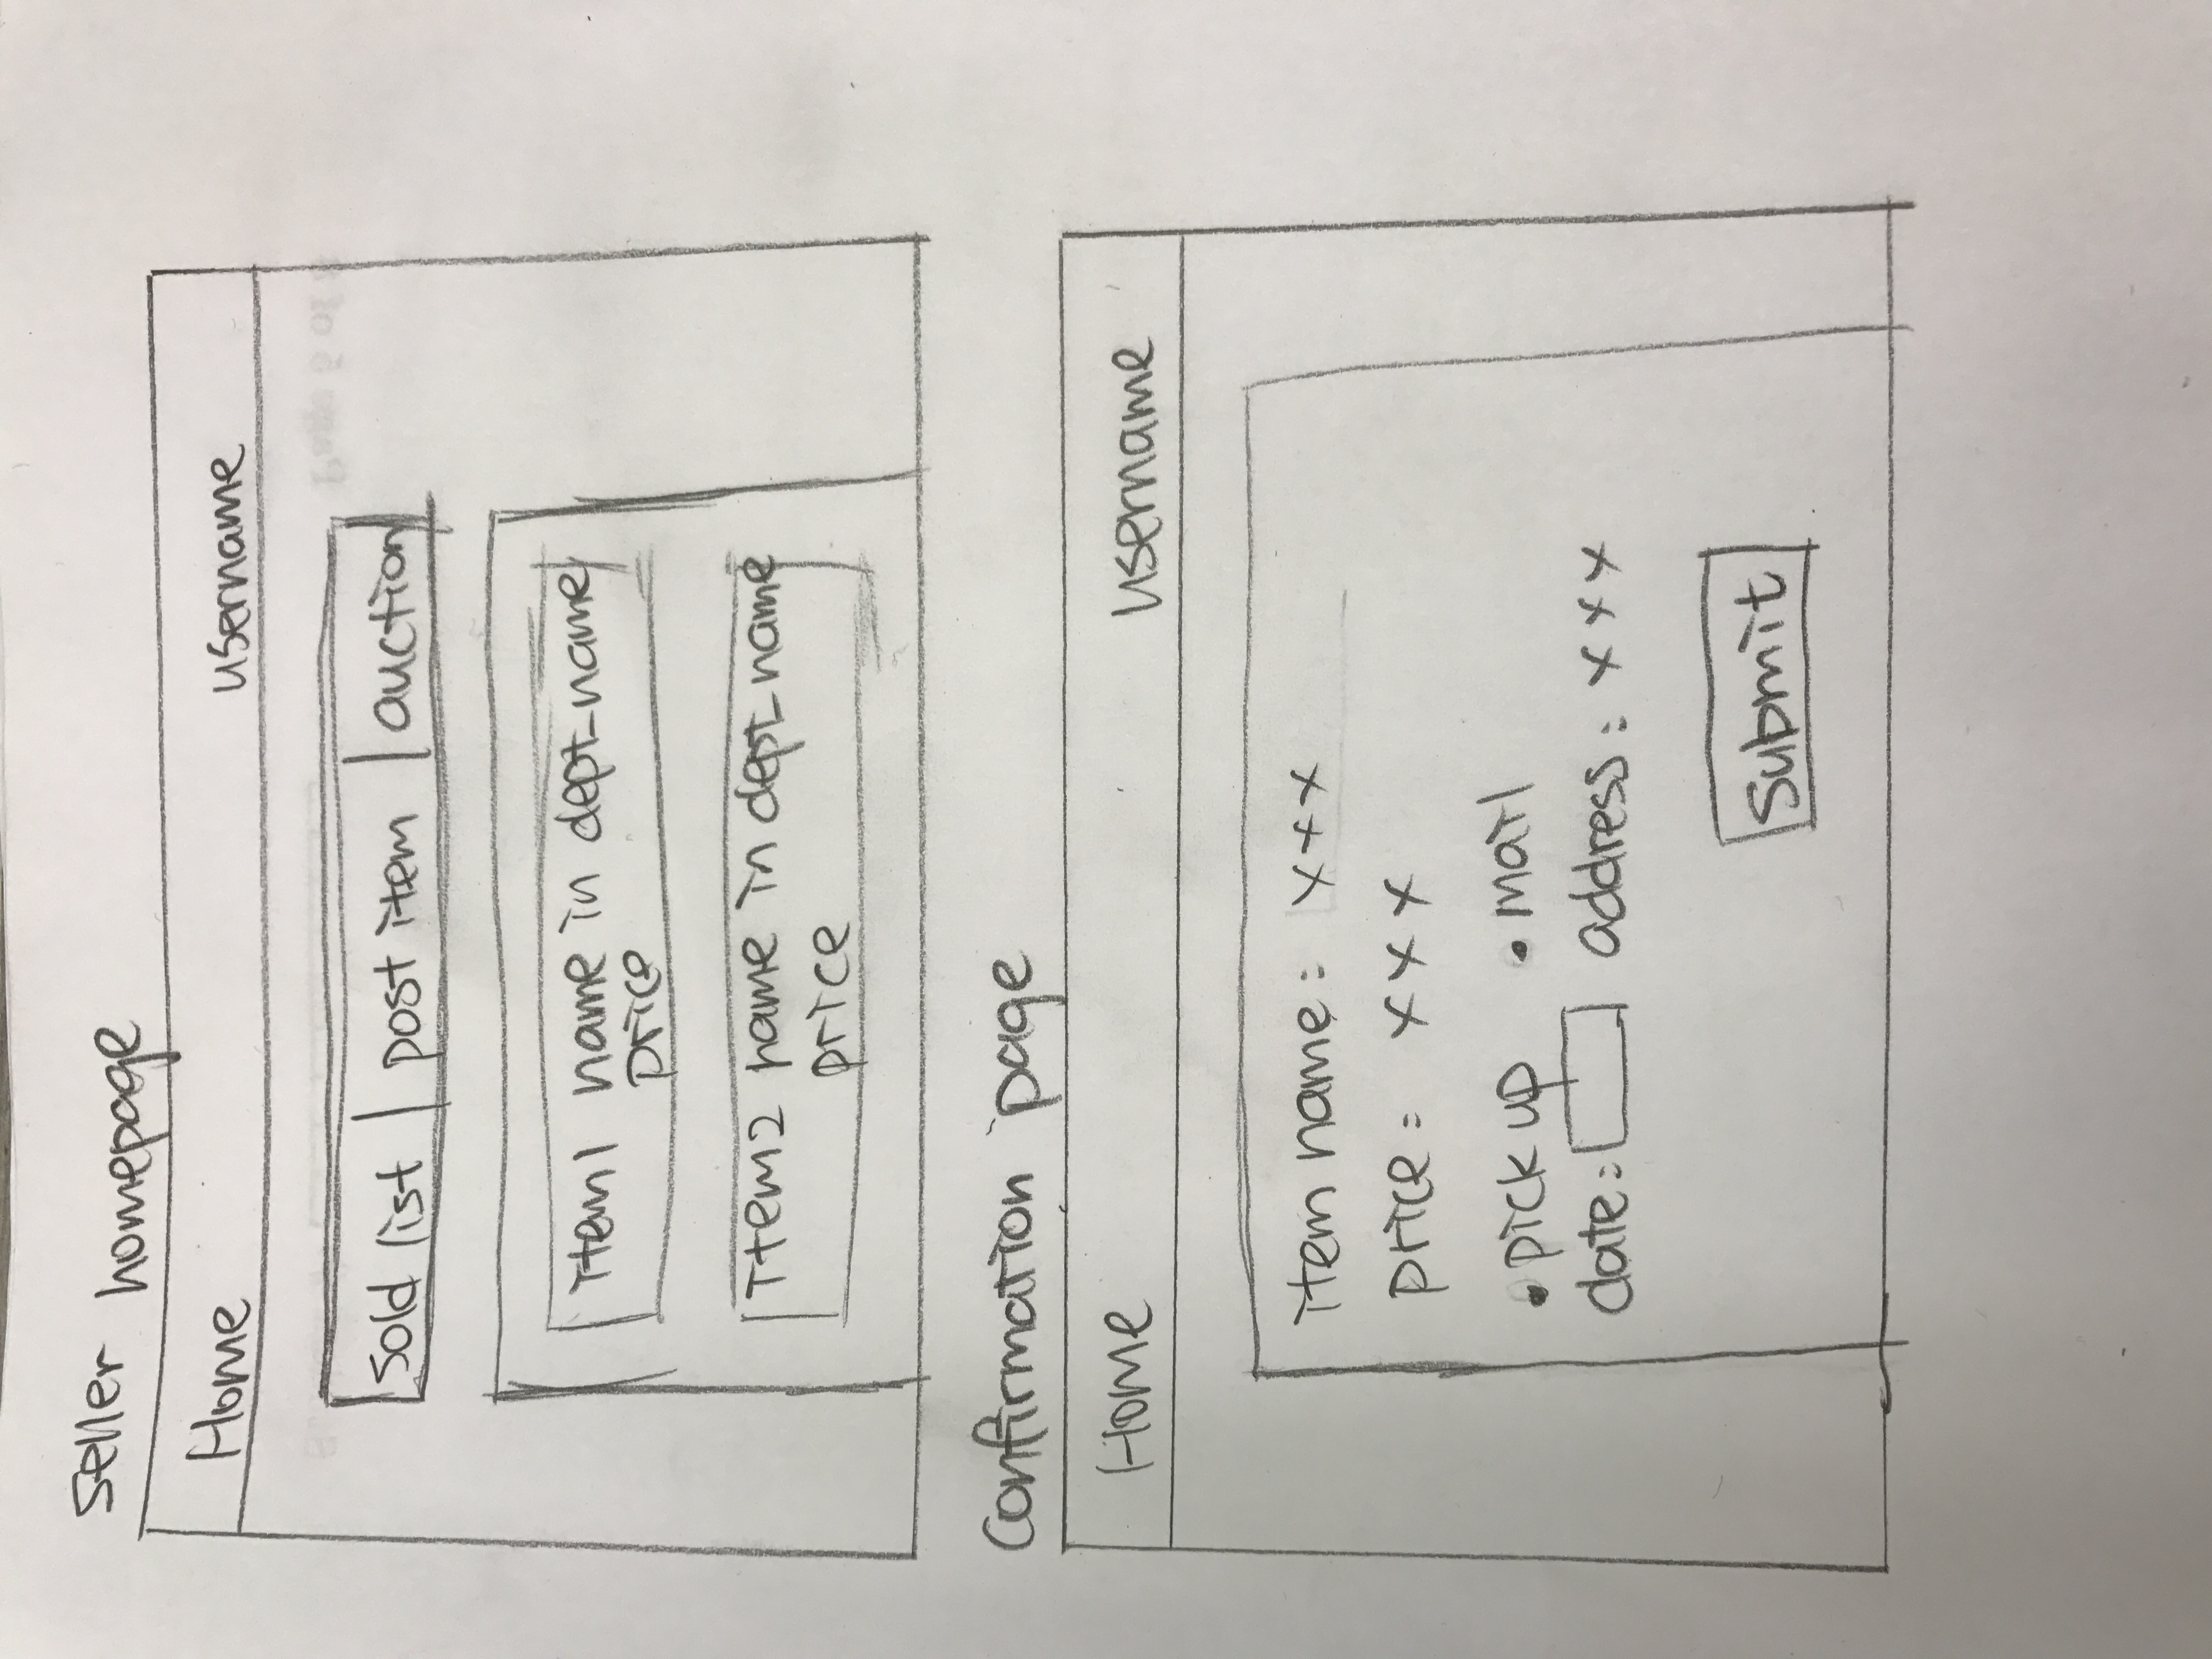 Seller homepage
Home username
sold list post item auction
item1 name in dept_name
price
item2 name in dept_name
price
Confirmation page
Home username
item name: xxx
price: xxx
• pick up • mail
date: address: xxx
Submit